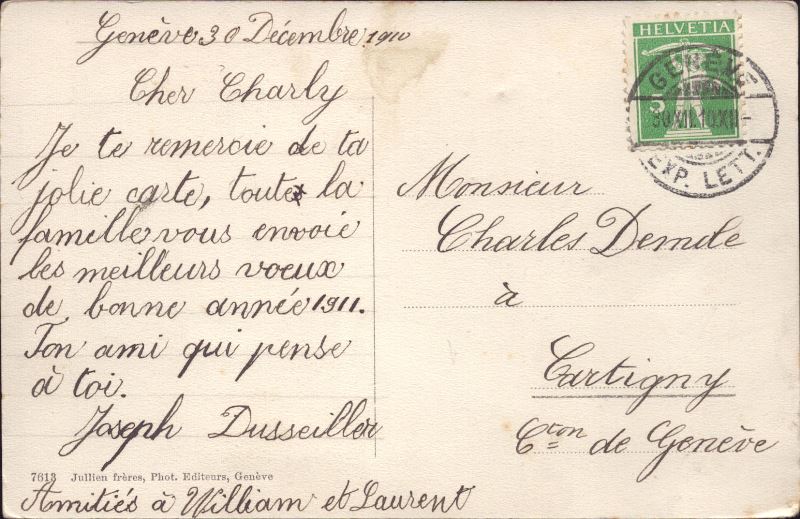 Genève 30 Décembre 1910
Cher Charly
Je te remercie de ta
jolie carte, toute la
famille vous envoie
les meilleurs voeux
de bonne année 1911.
Ton ami qui pense
à toi.
Joseph Dusseiller
7613 Jullien frères, Phot. Editeurs, Genève
Amitiés à William et Laurent
HELVETIA
5
GENÈVE
30.XII.10.XII-
EXP. LETT.
Monsieur
Charles Demole
à
Cartigny
Cton de Genève